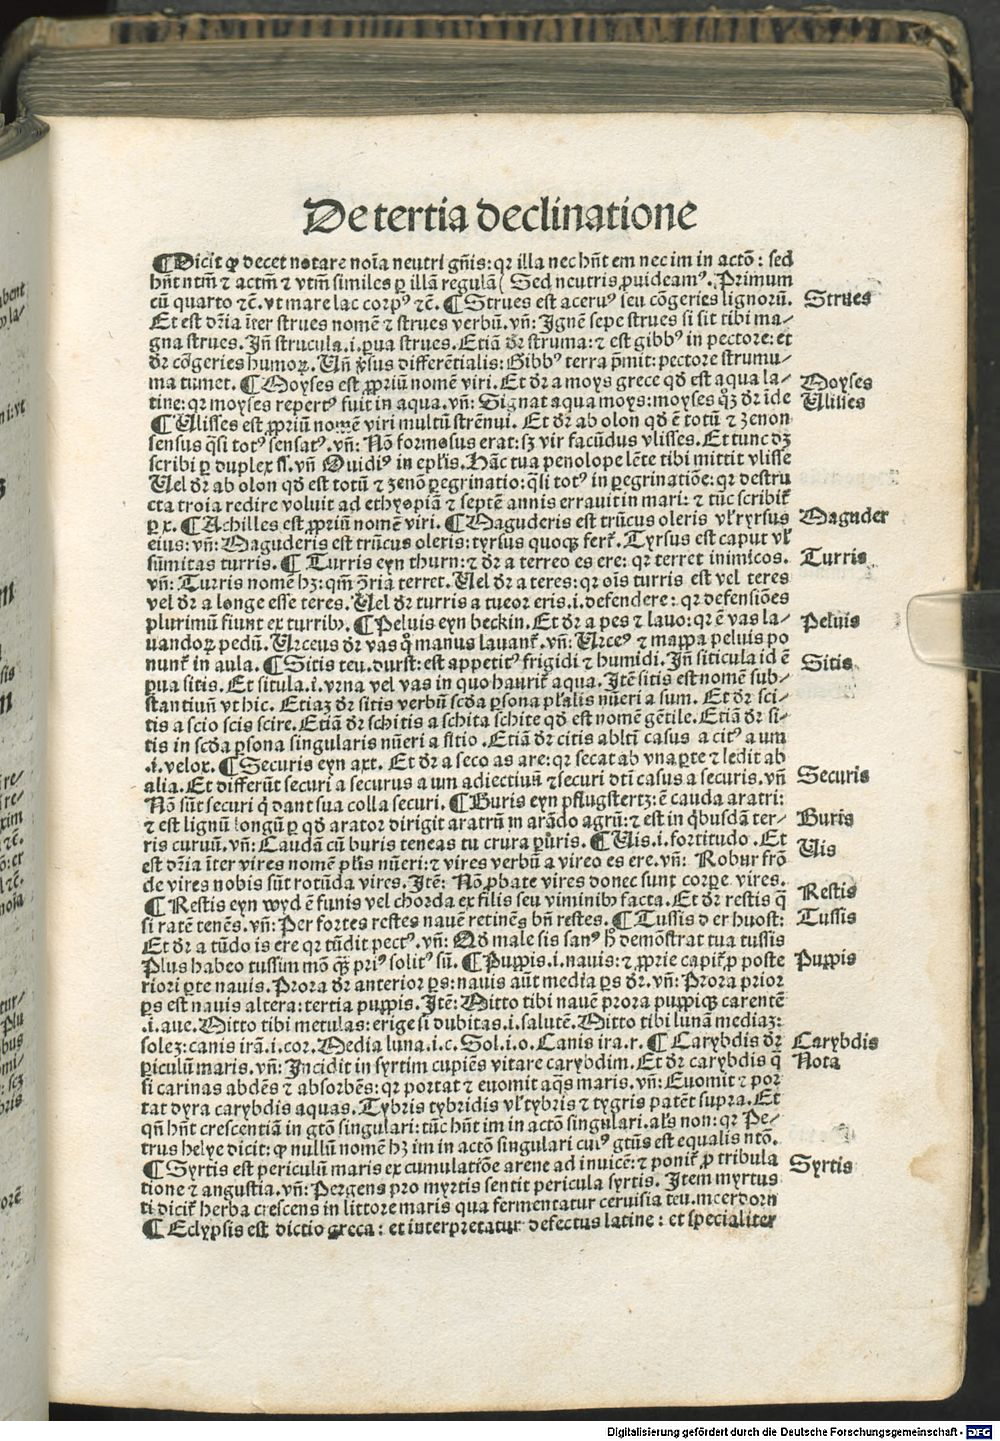 De tertia declinatione
¶ Dicit ꝙ decet notare noīa neutri gn̄is: qꝛ illa nec hn̄t em nec im in actō: sed
hn̄t ntm̄ ⁊ actm̄ ⁊ vtm̄ similes ꝑ illā regulā (Sed neutris ꝓuideamꝰ. Primum
cū quarto ⁊c̄. vt mare lac corpꝰ ⁊c̄. ¶ Strues est aceruꝰ seu cōgeries lignorū.
Strues
Et est dr̄ia īter strues nomē ⁊ strues verbū. vn̄: Ignē sepe strues si sit tibi ma-
gna strues. Jn̄ strucula .i. ꝑua strues. Etiā dr̄ struma: ⁊ est gibbꝰ in pectore: et
dr̄ cōgeries humoꝝ. Vn̄ ꝟsus differētialis: Gibbꝰ terga p̄mit: pectore strumu-
ma tumet. ¶ Moyses est ꝓpriū nomē viri. Et dr̄ a moys grece qd̄ est aqua la-
Moyses
tine: qꝛ moyses repertꝰ fuit in aqua. vn̄: Signat aqua moys: moyses qꝫ dr̄ īde
Ulisses
¶ Ulisses est ꝓpriū nomē viri multū strēnui. Et dr̄ ab olon qd̄ ē totū ⁊ zenon
sensus qͣsi totꝰ sensatꝰ. vn̄: Nō formosus erat: sꝫ vir facūdus vlisses. Et tunc dꝫ
scribi ꝑ duplex ſſ. vn̄ Ouidiꝰ in epl̄is. Hāc tua penolope lēte tibi mittit vlisse
Uel dr̄ ab olon qd̄ est totū ⁊ zenō ꝑegrinatio: qͣi totꝰ in ꝑegrinatiōe: qꝛ destru
cta troia redire voluit ad ethyopiā ⁊ septē annis errauit in mari: ⁊ tūc scribit᷑
ꝑ x. ¶ Achilles est ꝓpriū nomē viri. ¶ Maguderis est trūcus oleris vl̄ ryrsus
Maguder
eius: vn̄: Maguderis est trūcus oleris: tyrsus quoqꝫ fert᷑. Tyrsus est caput vl̄
sūmitas turris. ¶ Turris eyn thurn: ⁊ dr̄ a terreo es ere: qꝛ terret inimicos.
Turris
vn̄: Turris nomē hꝫ: qm̄ ꝯtraria terret. Uel dr̄ a teres: qꝛ oīs turris est vel teres
vel dr̄ a longe esse teres. Uel dr̄ turris a tueor eris .i. defendere: qꝛ defensiōes
plurimū fiunt ex turribꝫ. ¶ Peluis eyn beckin. Et dr̄ a pes ⁊ lauo: qꝛ ē vas la-
Peluis
uandoꝝ pedū. Urceus dr̄ vas qͦ manus lauant᷑. vn̄: Urceꝰ ⁊ mappa peluis po
nunt᷑ in aula. ¶ Sitis teu. durst: est appetitꝰ frigidi ⁊ humidi. Jn̄ siticula id ē
Sitis
ꝑua sitis. Et situla .i. vrna vel vas in quo haurit᷑ aqua. Jtē sitis est nomē sub-
stantiuū vt hic. Etiaꝫ dr̄ sitis verbū scd̄a ꝑsona pl̄alis nūeri a sum. Et dr̄ sci-
tis a scio scis scire. Etiā dr̄ schitis a schita schite qd̄ est nomē gētile. Etiā dr̄ si-
tis in scd̄a ꝑsona singularis nūeri a sitio. Etiā dr̄ citis abltī casus a citꝰ a um
.i. velox. ¶ Securis eyn axt. Et dr̄ a seco as are: qꝛ secat ab vna ꝑte ⁊ ledit ab
alia. Et differūt securi a securus a um adiectiuū ⁊ securi dti casus a securis. vn̄
Securis
Nō sūt securi qͥ dant sua colla securi. ¶ Buris eyn pflugstertz: ē cauda aratri:
⁊ est lignū longū ꝑ qd̄ arator dirigit aratrū in arādo agrū: ⁊ est in qͥbusdā ter-
Buris
ris curuū. vn̄: Caudā cū buris teneas tu crura ꝑuris. ¶ Uis .i. fortitudo. Et
Uis
est dr̄ia īter vires nomē pl̄is nūeri: ⁊ vires verbū a vireo es ere. vn̄: Robur frō
de vires nobis sūt rotūda vires. Jtē: Nō ꝓbate vires donec sunt corꝑe vires.
¶ Restis eyn wyd ē funis vel chorda ex filis seu viminibꝫ facta. Et dr̄ restis qͣ
Restis
si ratē tenēs. vn̄: Per fortes restes nauē retinēs bn̄ restes. ¶ Tussis d er huost:
Tussis
Et dr̄ a tūdo is ere qꝛ tūdit pectꝰ. vn̄: Qd̄ male sis sanꝰ hͦ demōstrat tua tussis
Plus habeo tussim mō qͣꝫ priꝰ solitꝰ sū. ¶ Puppis .i. nauis: ⁊ ꝓprie capit᷑ ꝓ poste
Puppis
riori ꝑte nauis. Prora dr̄ anterior ꝑs: nauis aūt media ꝑs dr̄. vn̄: Prora prior
ꝑs est nauis altera: tertia puppis. Jtē: Mitto tibi nauē prora puppiqꝫ carentē
.i. aue. Mitto tibi metulas: erige si dubitas .i. salutē. Mitto tibi lunā mediaꝫ:
soleꝫ: canis irā .i. cor. Media luna .i. c. Sol .i. o. Canis ira .r. ¶ Carybdis dr̄
Carybdis
ꝑiculū maris. vn̄: Jncidit in syrtim cupiēs vitare carybdim. Et dr̄ carybdis qͣ
Nota
si carinas abdēs ⁊ absorbēs: qꝛ portat ⁊ euomit aqͣs maris. vn̄: Euomit ⁊ por
tat dyra carybdis aquas. Tybris tybridis vl̄ tybris ⁊ tygris patēt supra. Et
qn̄ hn̄t crescentiā in gtō singulari: tūc hn̄t im in actō singulari. al̄s non: qꝛ Pe-
trus helye dicit: ꝙ nullū nomē hꝫ im in actō singulari cuiꝰ gtūs est equalis ntō.
¶ Syrtis est periculū maris ex cumulatiōe arene ad inuicē: ⁊ ponit᷑ ꝓ tribula
Syrtis
tione ⁊ angustia. vn̄: Pergens pro myrtis sentit pericula syrtis. Jtem myrtus
ti dicit᷑ herba crescens in littore maris qua fermentatur ceruisia teu. meerdorn
¶ Eclypsis est dictio greca: et interpretatur defectus latine: et specialiter
Digitalisierung gefördert durch die Deutsche Forschungsgemeinschaft - DFG